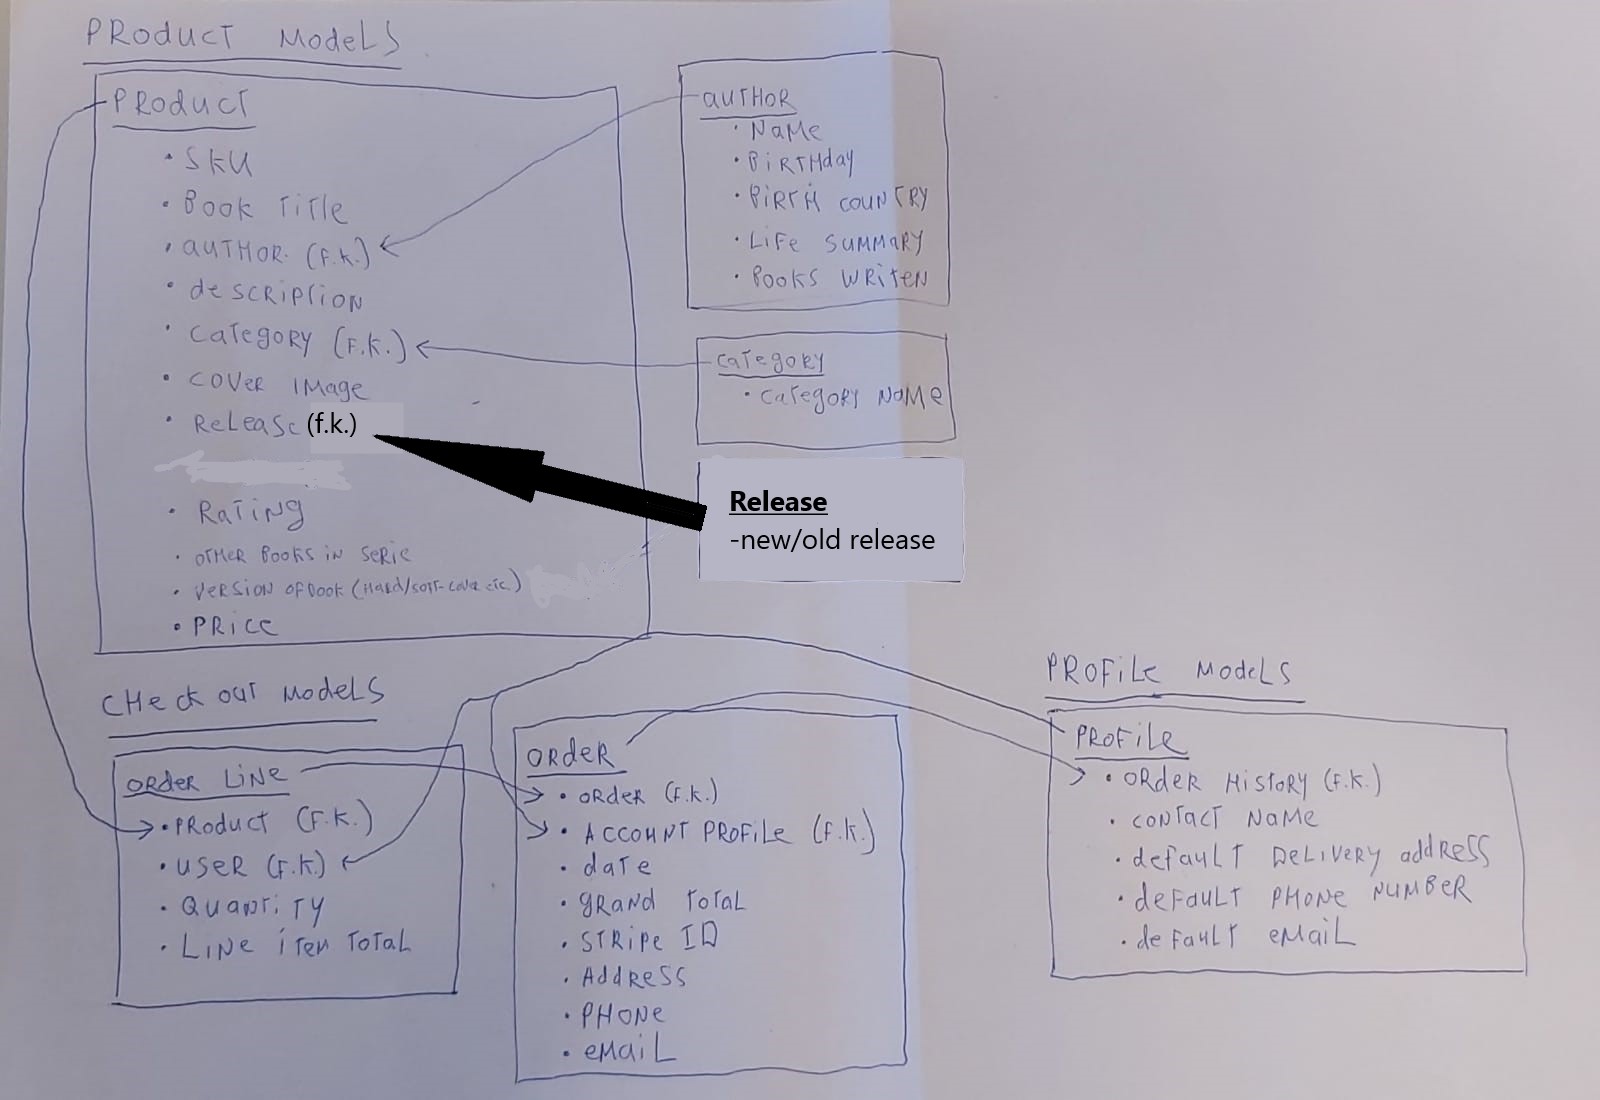 PRODUCT MODELS
PRODUCT
• SKU
• BOOK TITLE
• AUTHOR (F.K.)
• DESCRIPTION
• CATEGORY (F.K.)
• COVER IMAGE
• RELEASE (f.k.)
• RATING
• OTHER BOOKS IN SERIE
• VERSION OF BOOK (HARD/SOFT-COVER ETC.)
• PRICE
AUTHOR
• NAME
• BIRTHDAY
• BIRTH COUNTRY
• LIFE SUMMARY
• BOOKS WRITEN
CATEGORY
• CATEGORY NAME
Release
-new/old release
CHECK OUT MODELS
ORDER LINE
• PRODUCT (F.K.)
• USER (F.K.)
• QUANTITY
• LINE ITEM TOTAL
ORDER
• ORDER (F.K.)
• ACCOUNT PROFILE (F.K.)
• DATE
• GRAND TOTAL
• STRIPE ID
• ADDRESS
• PHONE
• EMAIL
PROFILE MODELS
PROFILE
• ORDER HISTORY (F.K.)
• CONTACT NAME
• DEFAULT DELIVERY ADDRESS
• DEFAULT PHONE NUMBER
• DEFAULT EMAIL